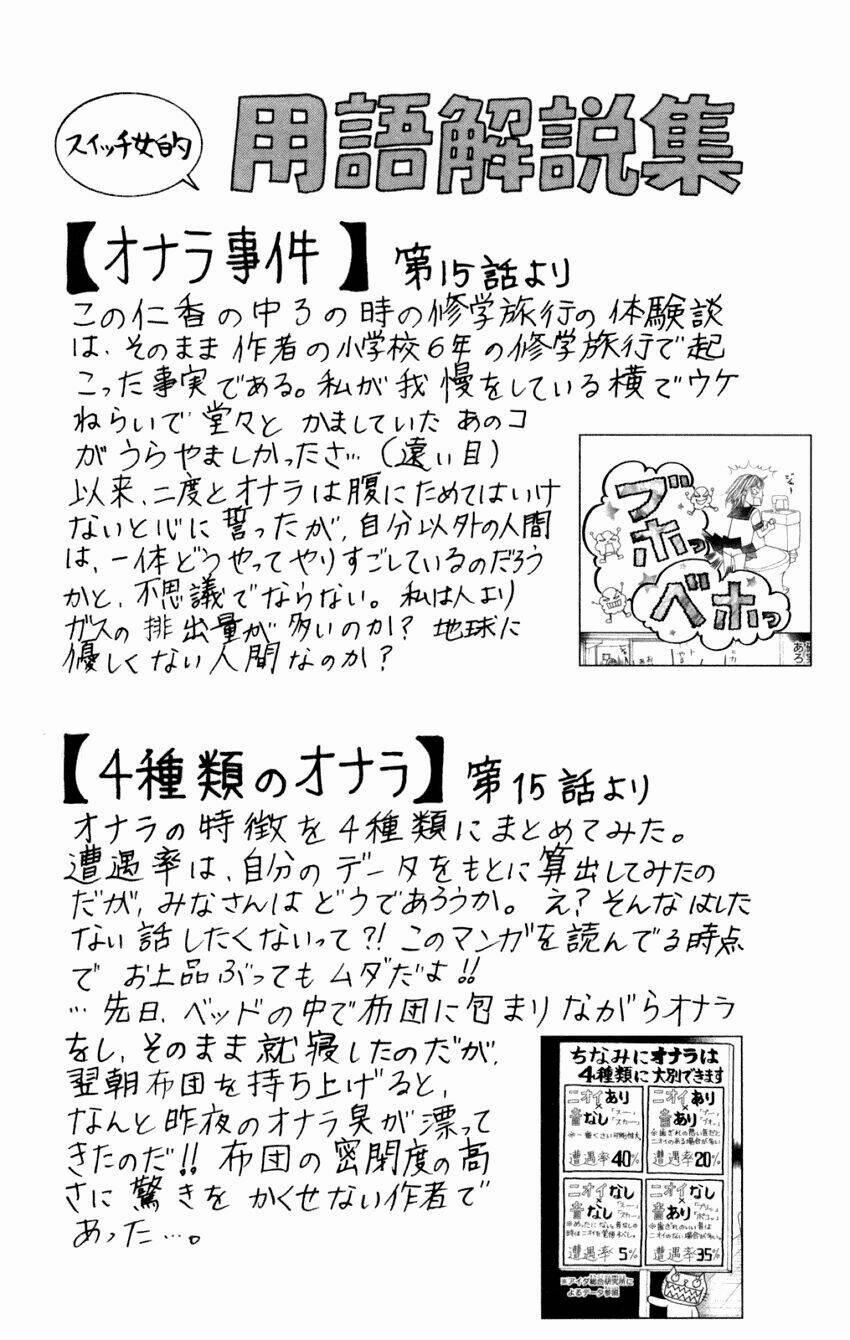 スイッチ女的
用語解説集
【オナラ事件】第15話より
この仁香の中3の時の修学旅行の体験談
は、そのまま作者の小学校6年の修学旅行で起
こった事実である。私が我慢をしている横でウケ
ねらいで堂々とかましていたあのコ
がうらやましかったさ…(遠い目)
以来、二度とオナラは腹にためてはいけ
ないと心に誓ったが、自分以外の人間
は、一体どうやってやりすごしているのだろう
かと、不思議でならない。私は人より
ガスの排出量が多いのか?地球に
優しくない人間なのか?
ブホっ
ベホっ
【4種類のオナラ】第15話より
オナラの特徴を4種類にまとめてみた。
遭遇率は、自分のデータをもとに算出してみたの
だが、みなさんはどうであろうか。え?そんなはした
ない話したくないって?!このマンガを読んでる時点
でお上品ぶってもムダだよ!!
…先日、ベッドの中で布団に包まりながらオナラ
をし、そのまま就寝したのだが、
翌朝布団を持ち上げると、
なんと昨夜のオナラ臭が漂って
きたのだ!!布団の密閉度の高
さに驚きをかくせない作者で
あった…。
ちなみにオナラは
4種類に大別できます
ニオイあり
×
音なし「スー」「スカー」
遭遇率40%
ニオイあり
×
音あり「ブー」「ブオッ」
遭遇率20%
ニオイなし
×
音なし「スー」「スカー」
遭遇率5%
ニオイなし
×
音あり
※歯ぎれのいい音は
ニオイのない場合が多い。
遭遇率35%
※アイダ総合研究所に
よるデータ参照